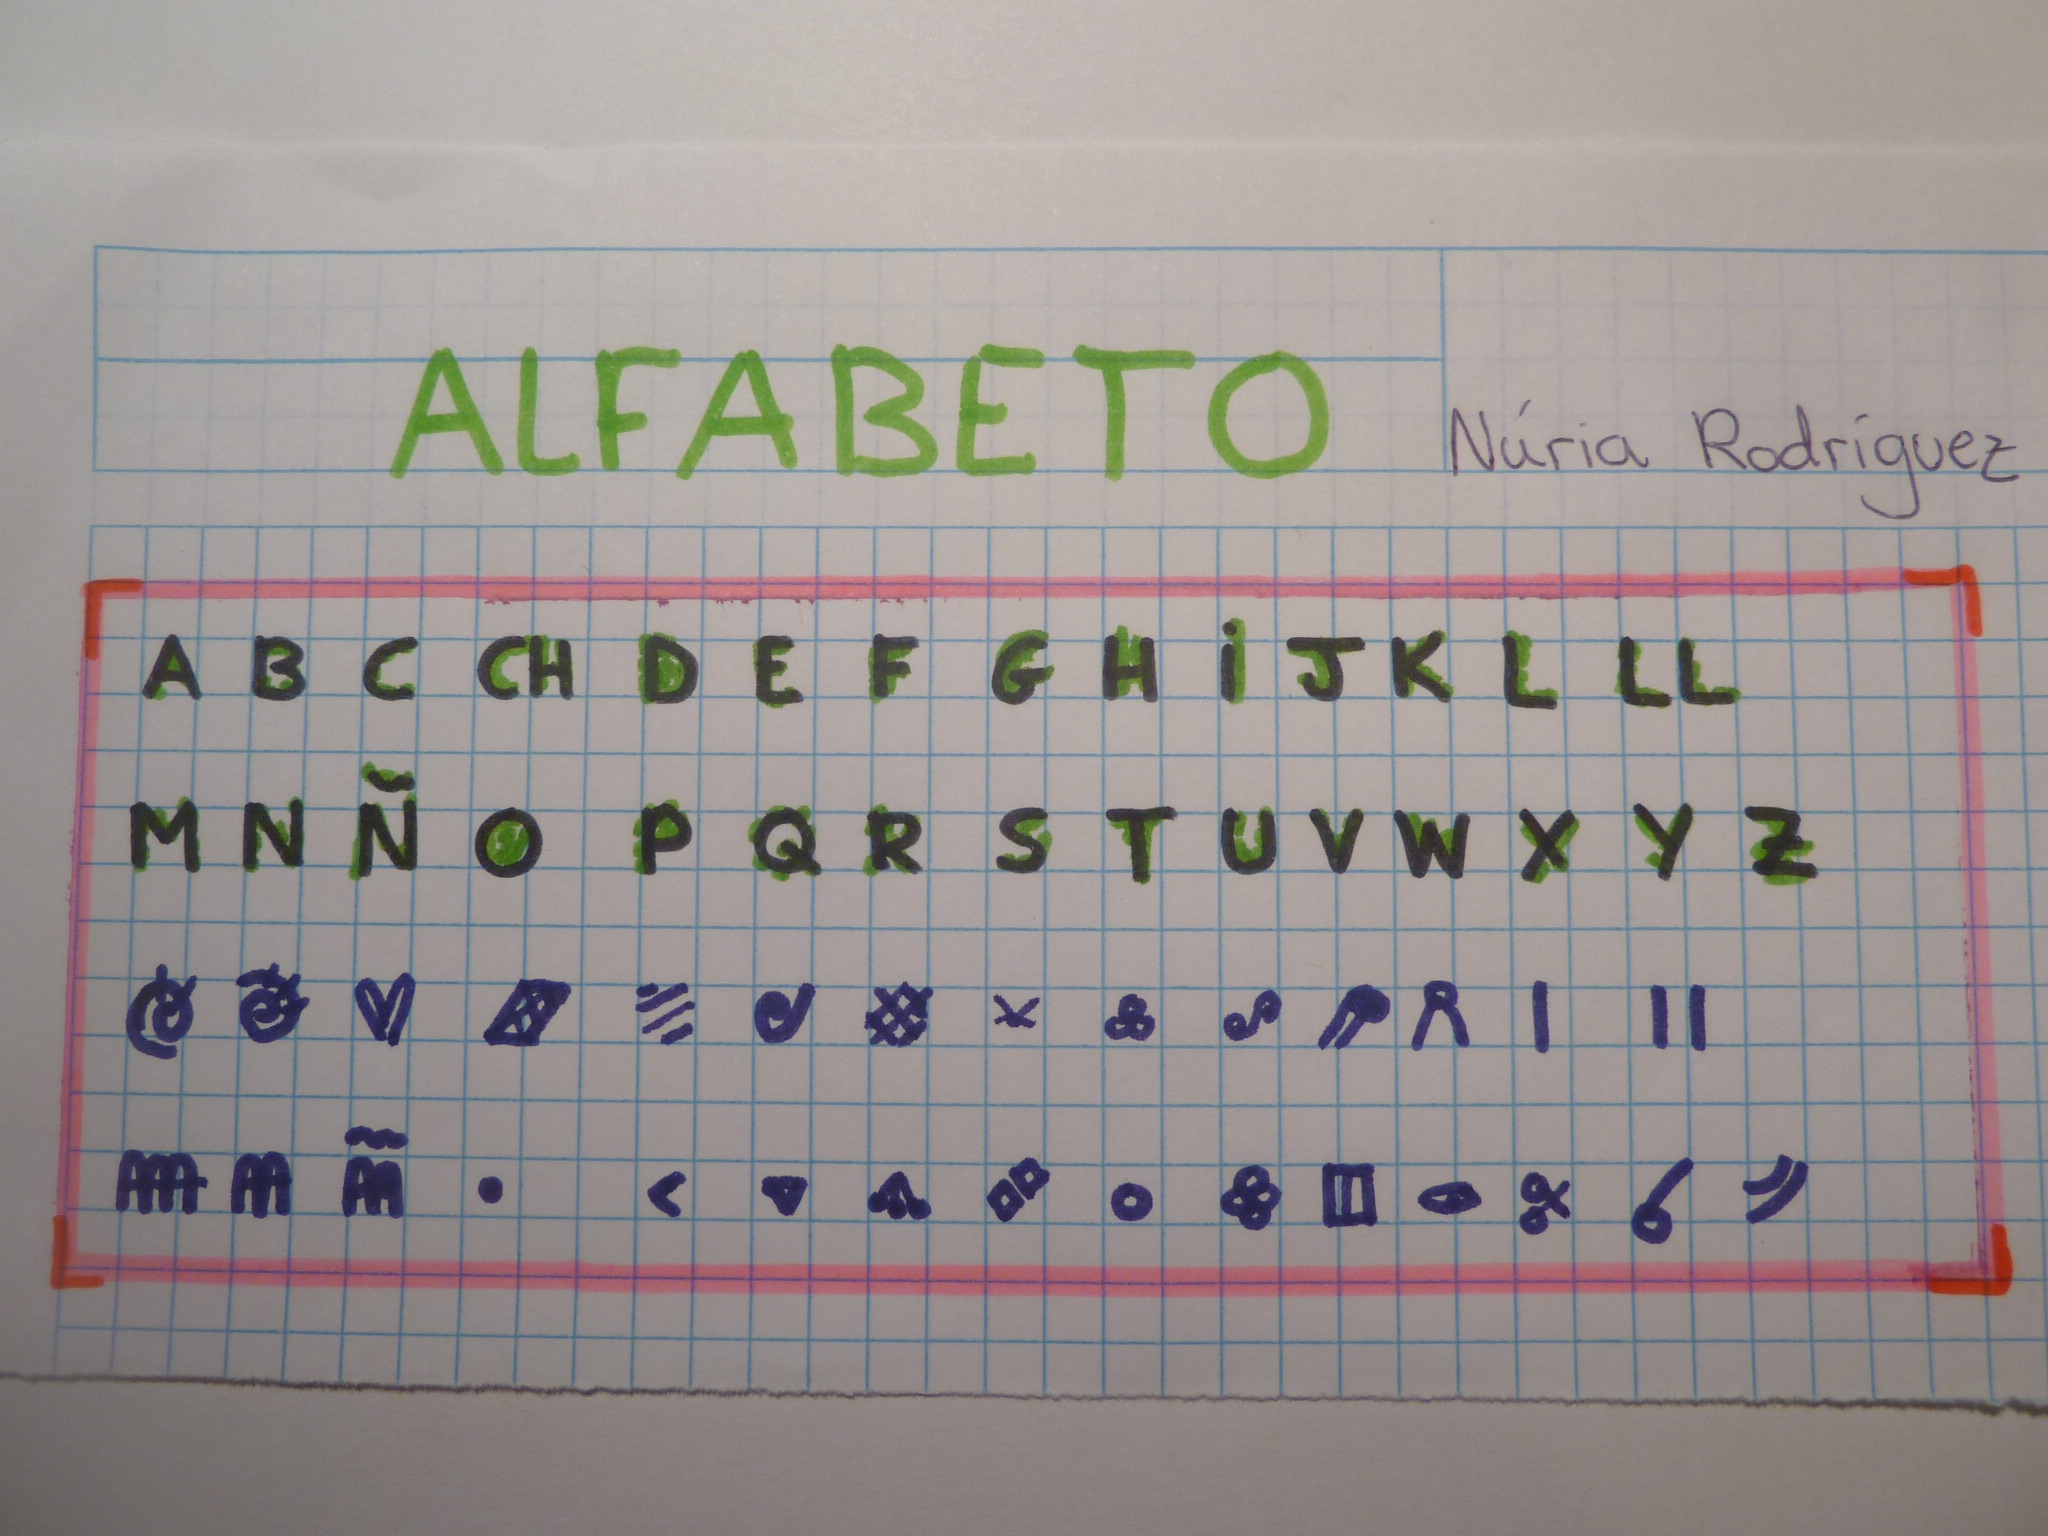 ALFABETO
Núria Rodríguez
A B C CH D E F G H i J K L LL
M N Ñ O P Q R S T U V W X Y Z